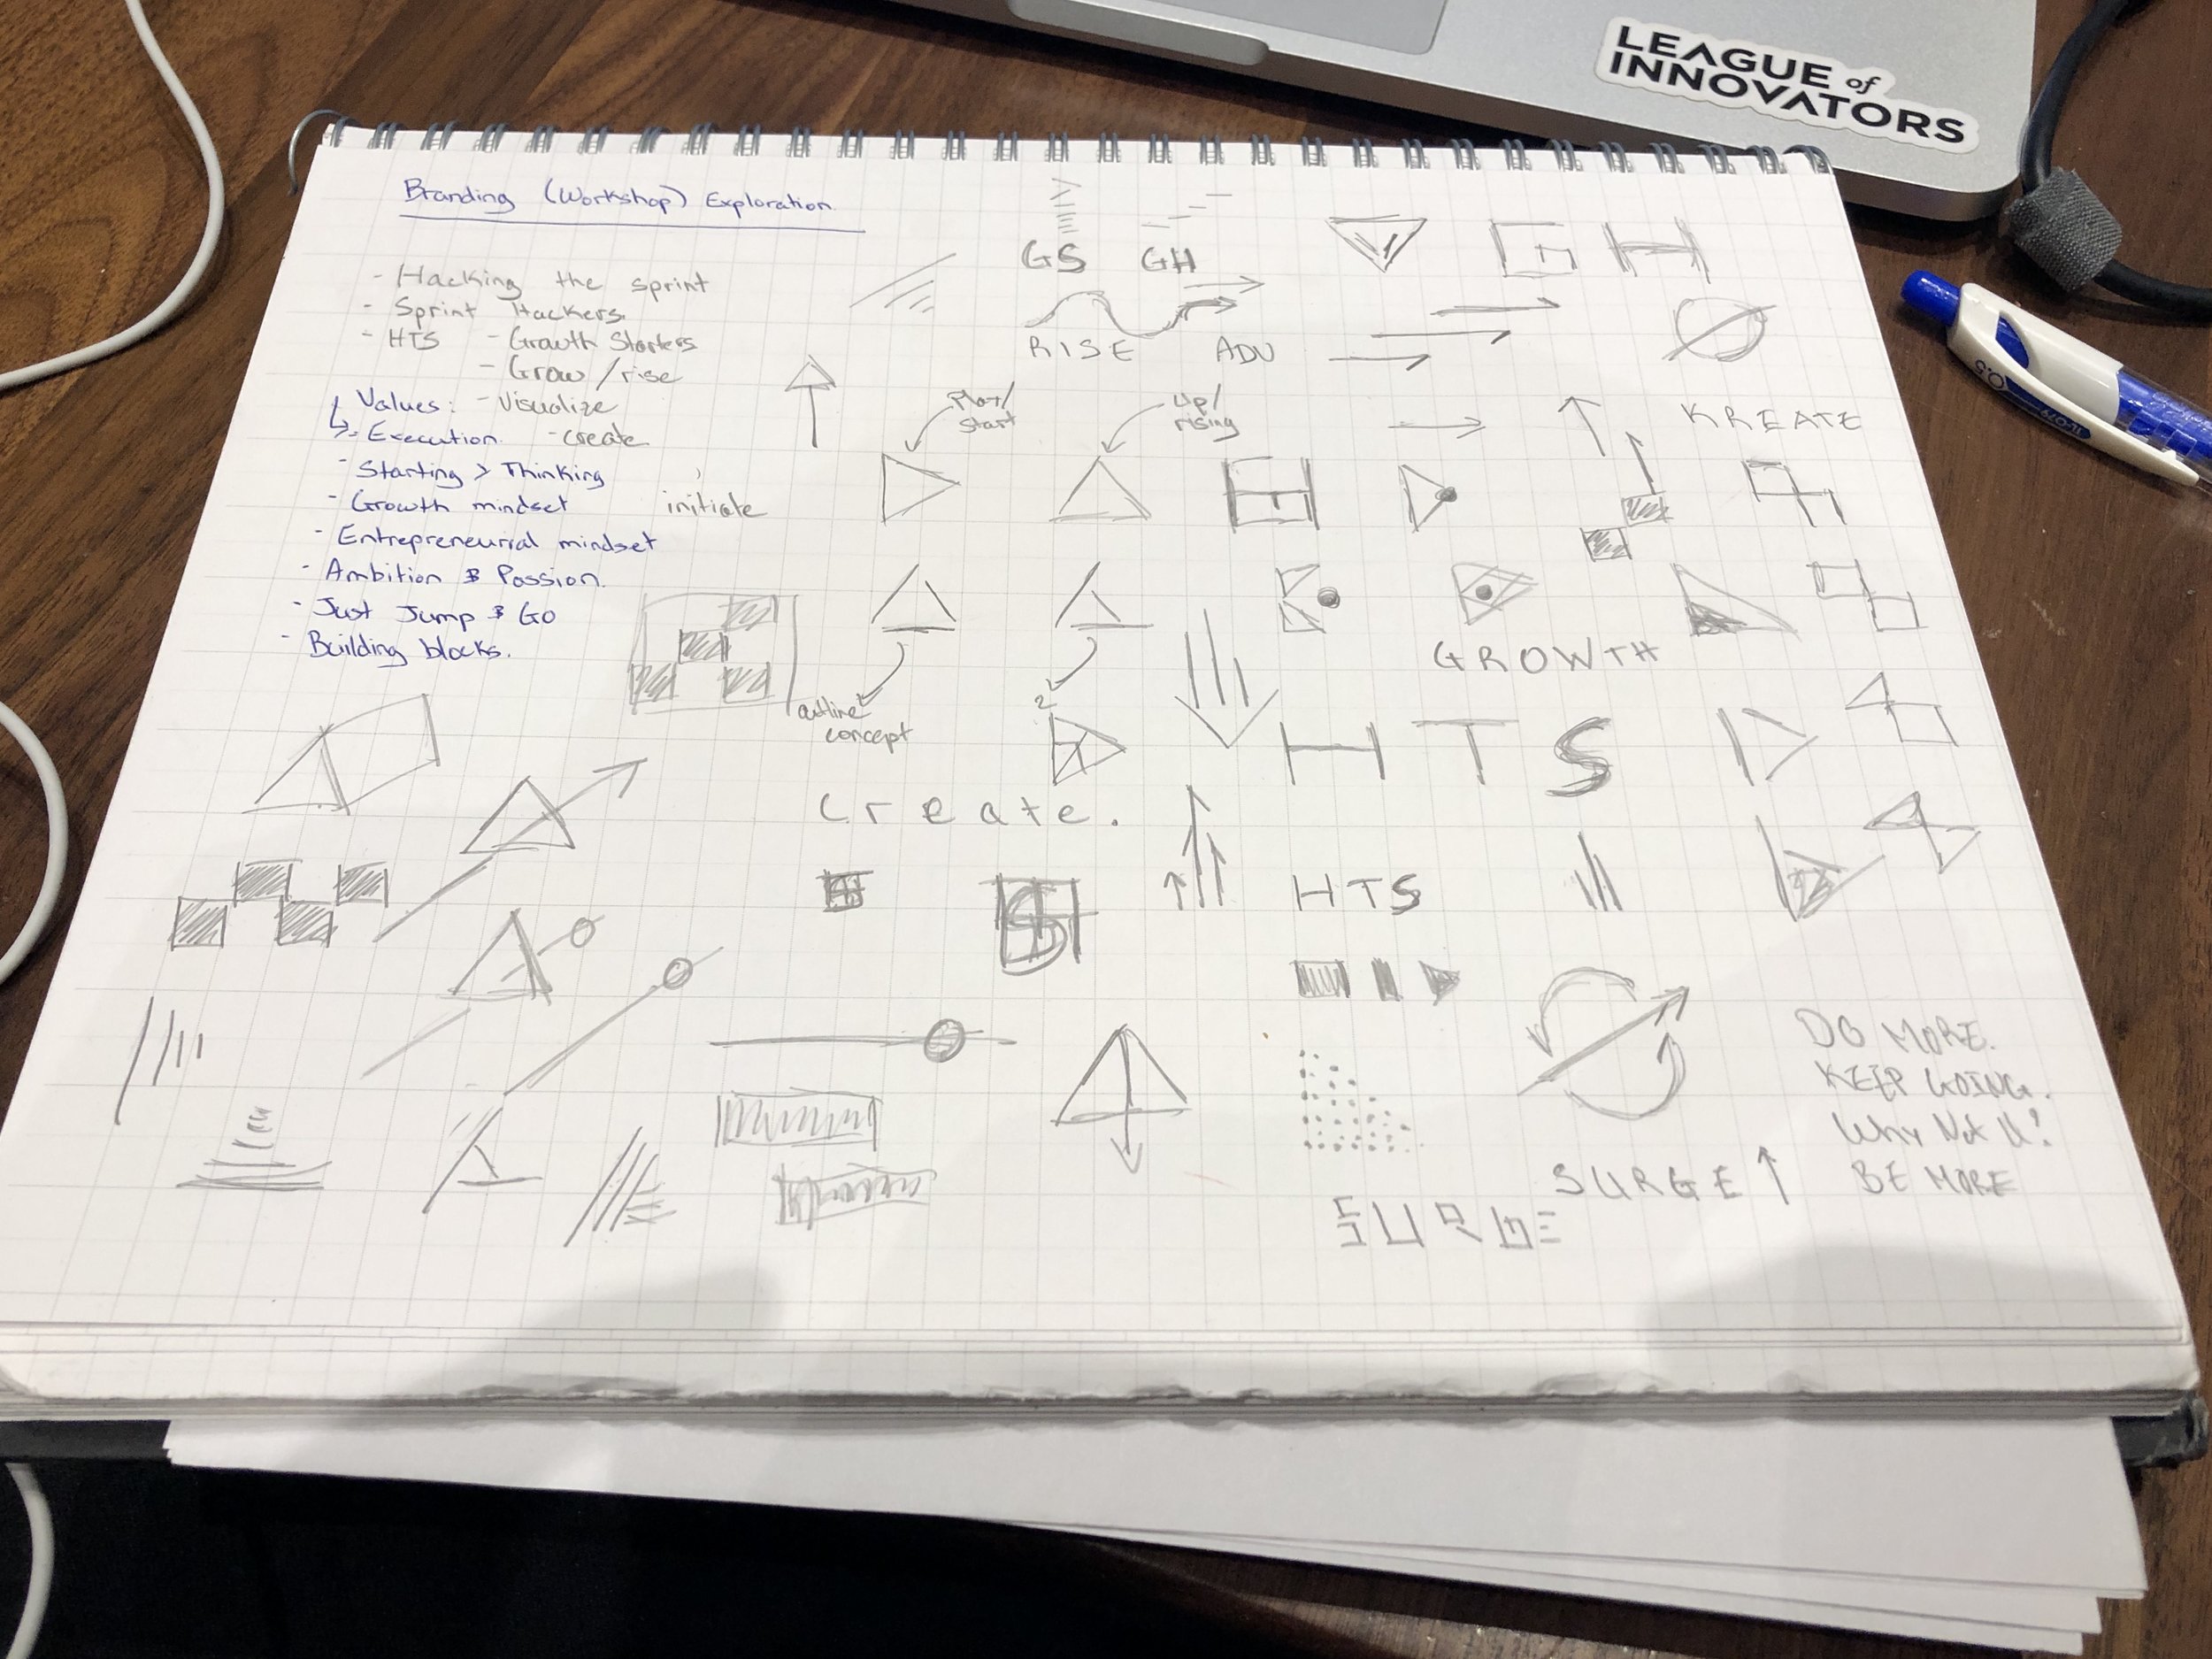 LEAGUE of
INNOVATORS
Branding (Workshop) Exploration
- Hacking the sprint
- Sprint Hackers
- HTS - Growth Starters
- Grow/rise
Values: - Visualize
- Execution - create
- Starting > Thinking
- Growth mindset
initiate
- Entrepreneurial mindset
- Ambition & Passion.
- Just Jump & Go
- Building blocks.
GS GH
GH
RISE ADV
Play/
start
Up/
rising
KREATE
outline
concept
2
GROWTH
HTS
create.
HTS
DO MORE.
KEEP GOING.
Why Not U?
BE MORE
SURGE ↑
SURGE
0.5